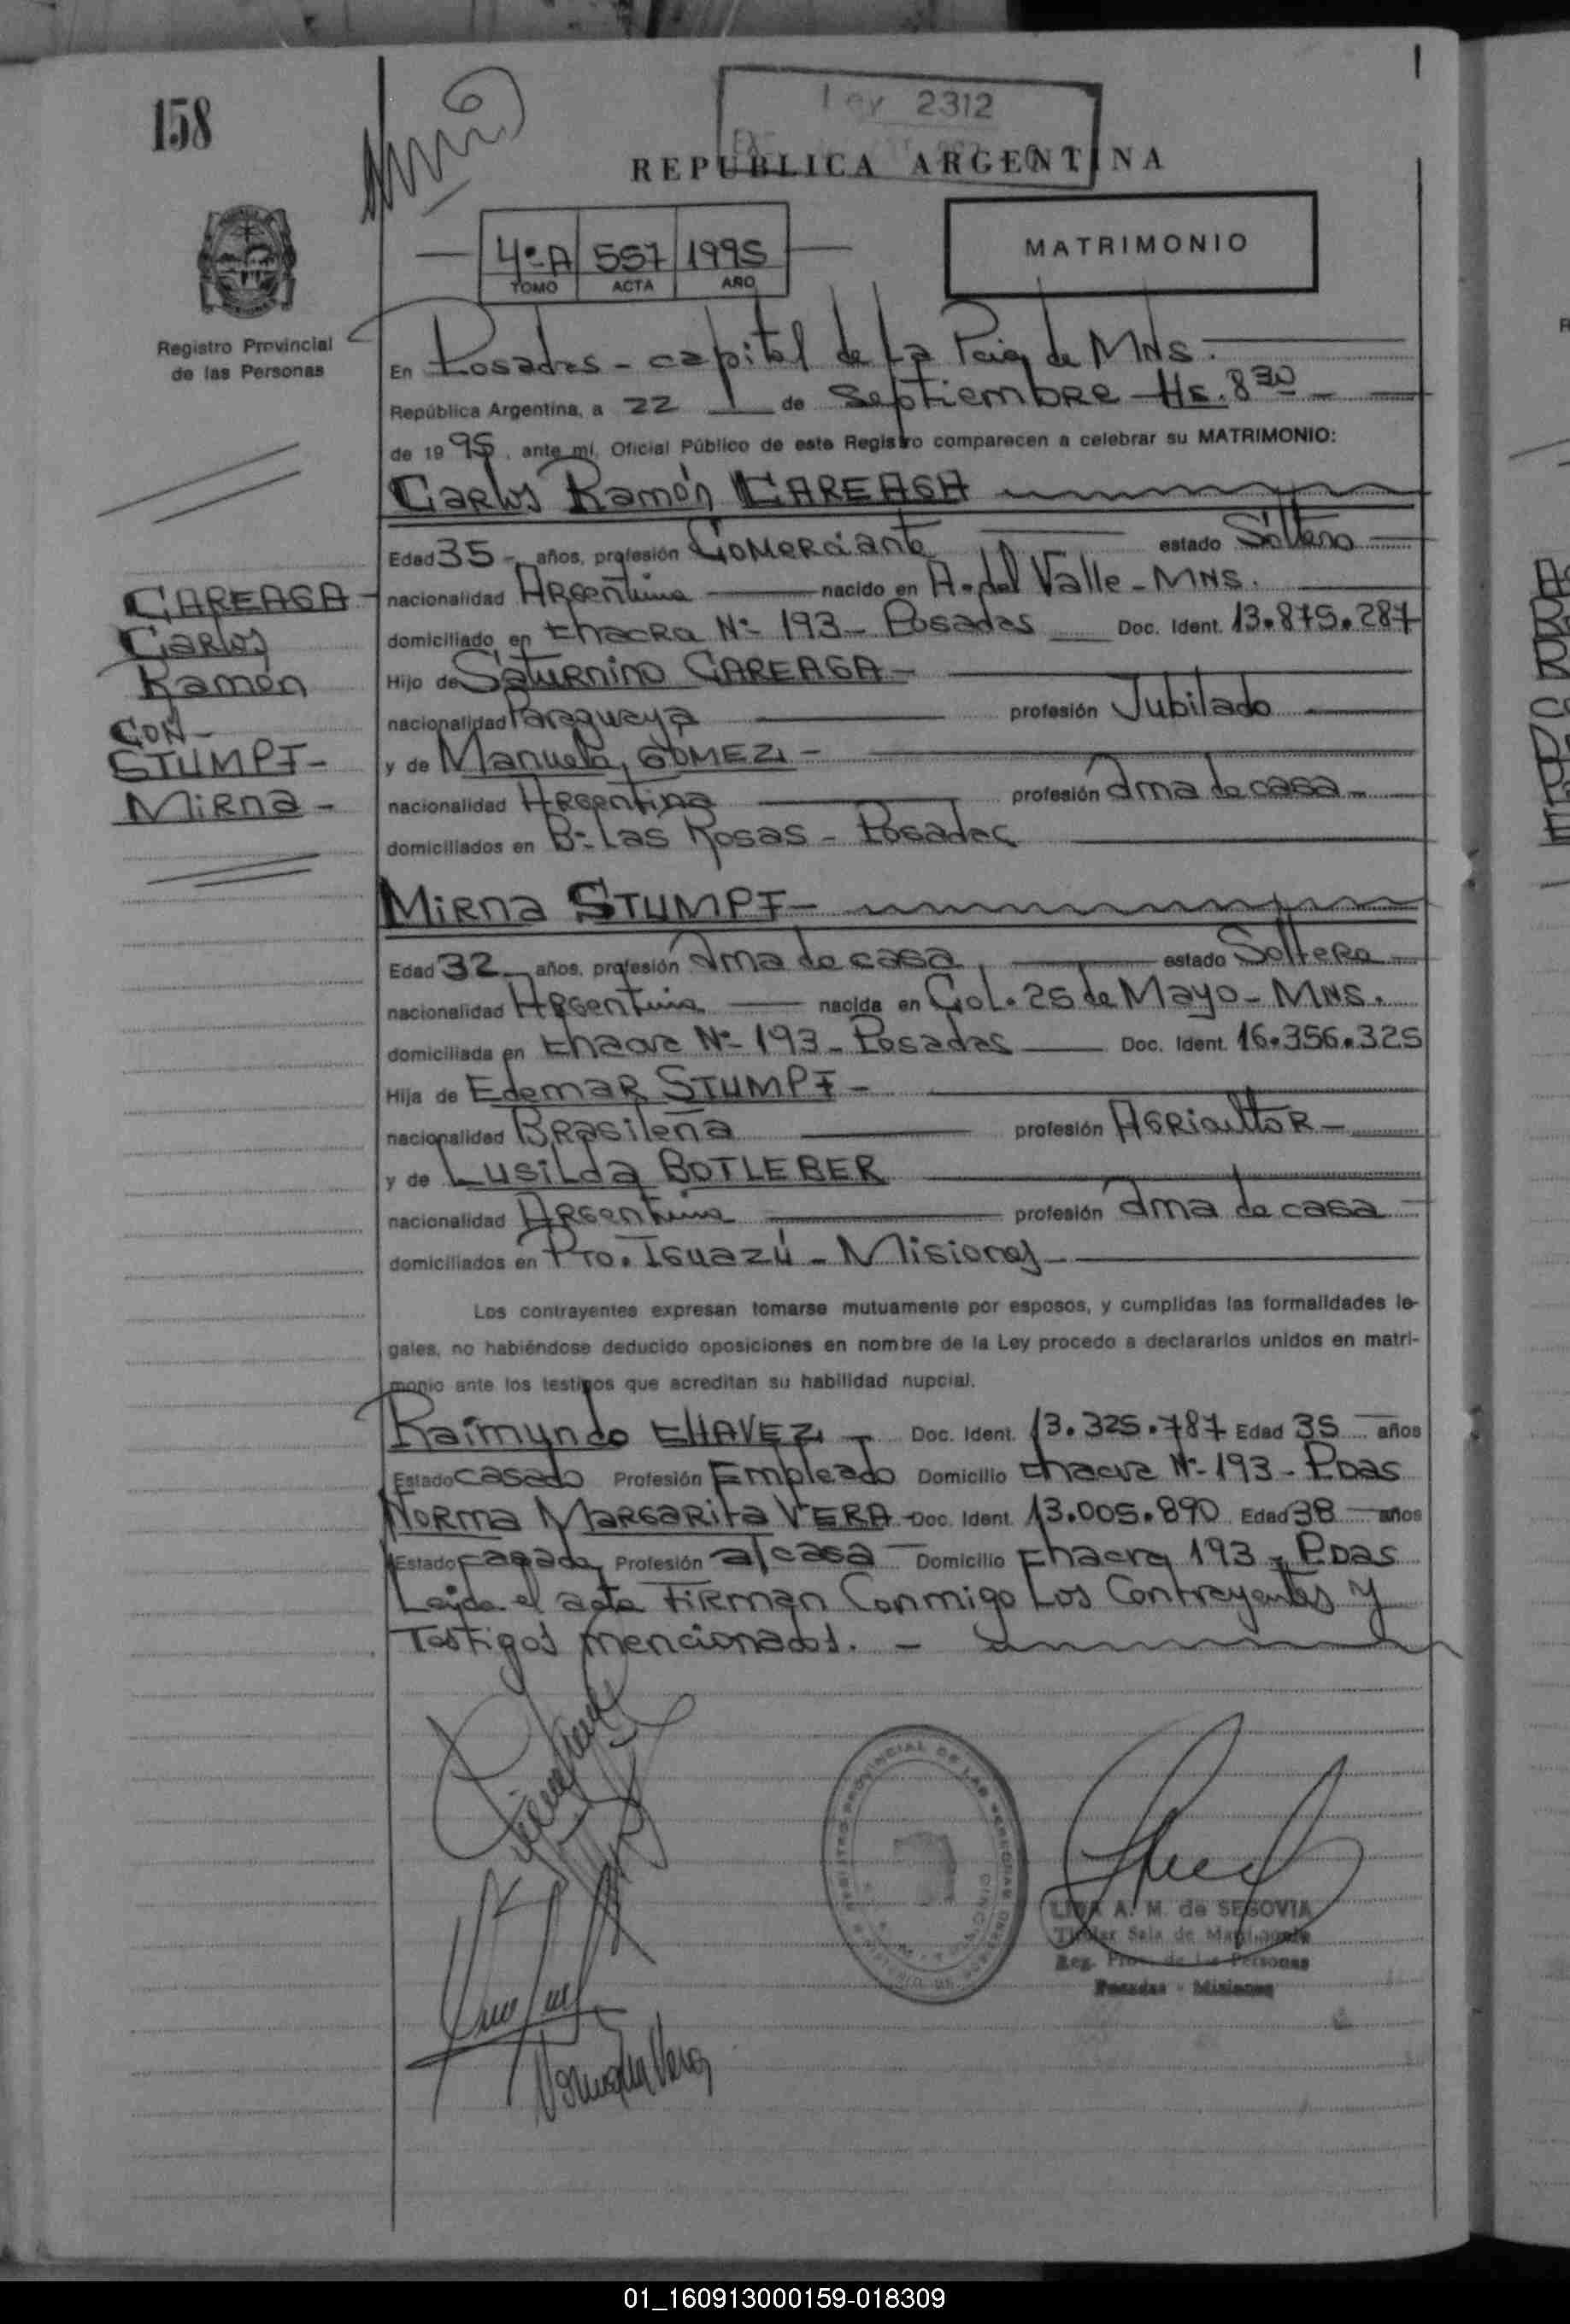 158
Ley 2312
REPUBLICA ARGENTINA
4º A 557 1995
TOMO ACTA AÑO
MATRIMONIO
Registro Provincial
de las Personas
En Posadas - capital de la Pcia de MNS.
República Argentina, a 22 de Septiembre Hs. 8 30
de 1995, ante mí, Oficial Público de este Registro comparecen a celebrar su MATRIMONIO:
Carlos Ramón CAREAGA
Edad 35 - años, profesión Comerciante estado Soltero
nacionalidad Argentina nacido en A. del Valle - MNS.
domiciliado en Chacra Nº 193 - Posadas Doc. Ident. 13.875.287
Hijo de Saturnino CAREAGA -
nacionalidad Paraguaya profesión Jubilado
y de Manuela GOMEZ -
nacionalidad Argentina profesión Ama de casa -
domiciliados en Bº Las Rosas - Posadas
CAREAGA
Carlos
Ramón
CON -
STUMPF -
Mirna -
Mirna STUMPF -
Edad 32 - años, profesión Ama de casa estado Soltera
nacionalidad Argentina nacida en Col. 25 de Mayo - MNS.
domiciliada en Chacra Nº 193 - Posadas Doc. Ident. 16.356.325
Hija de Edemar STUMPF -
nacionalidad Brasileña profesión Agricultor -
y de Lusilda BOTLEBER
nacionalidad Argentina profesión Ama de casa -
domiciliados en Pto. Iguazú - Misiones
Los contrayentes expresan tomarse mutuamente por esposos, y cumplidas las formalidades le-
gales, no habiéndose deducido oposiciones en nombre de la Ley procedo a declararlos unidos en matri-
monio ante los testigos que acreditan su habilidad nupcial.
Raimundo CHAVEZ - Doc. Ident. 13.325.787 Edad 35 años
Estado Casado Profesión Empleado Domicilio Chacra Nº 193 - Pdas
Norma Margarita VERA - Doc. Ident. 13.005.890 Edad 38 años
Estado Casada Profesión a/casa - Domicilio Chacra 193 - Pdas
Leída el acta Firman Conmigo Los Contrayentes y
Testigos mencionados. -
LIDA A. M. de SEGOVIA
Titular Sala de Matrimonio
Reg. Prov. de las Personas
Posadas - Misiones
01_160913000159-018309